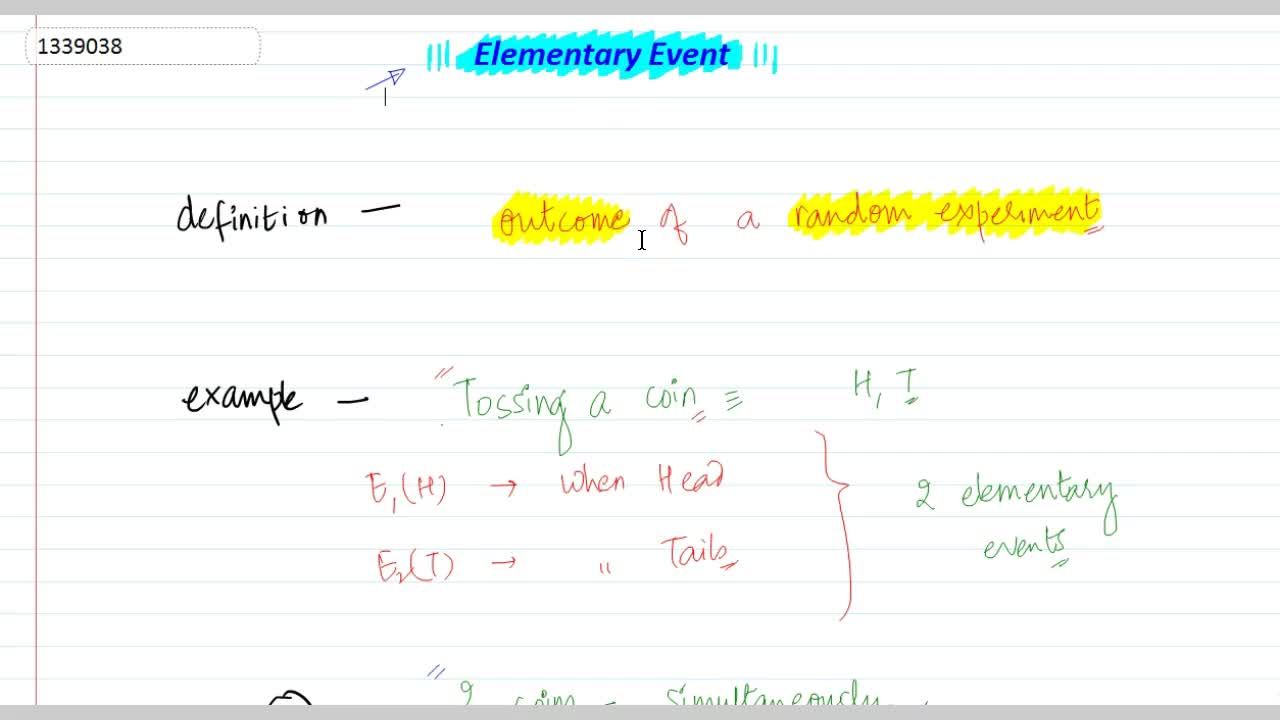 1339038
Elementary Event
definition — outcome of a random experiment
example — "Tossing a coin ≡ H, T
E₁(H) → when Head
E₂(T) → " Tails
2 elementary
events
" 2 coins - simultaneously